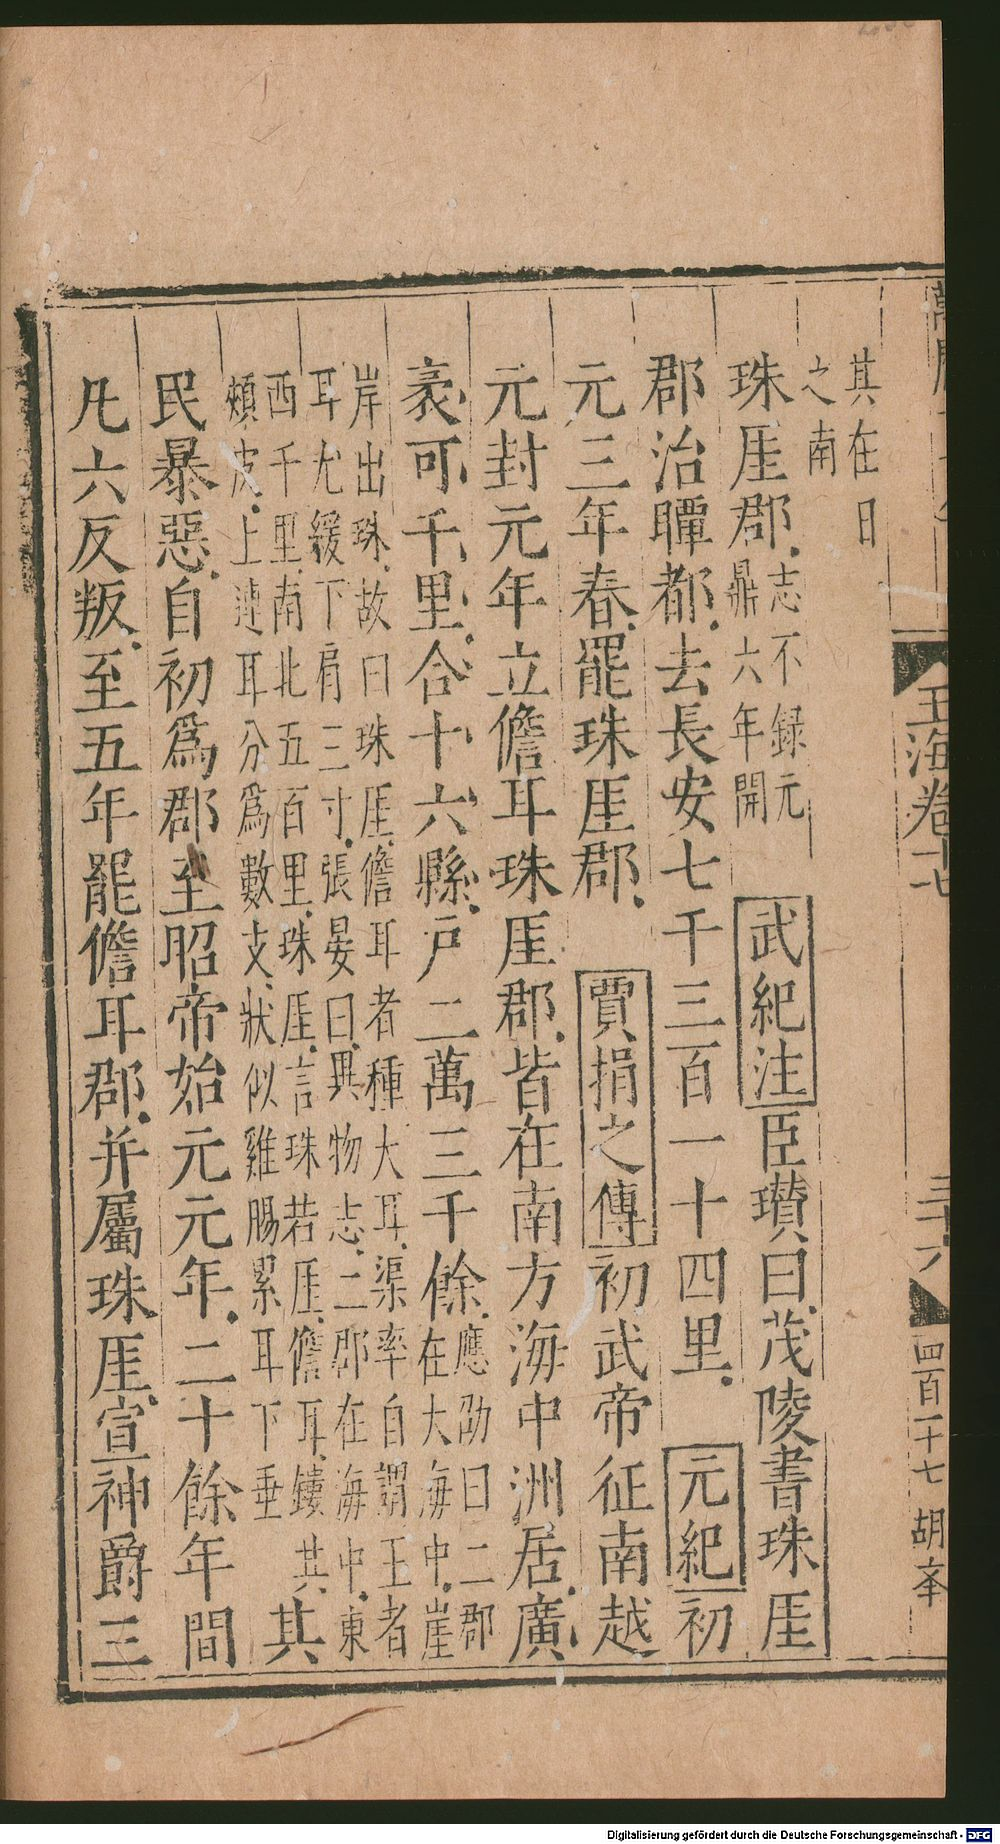 玉海卷十七
三十六
四百十七
其在日
之南
珠厓郡
志不録元
鼎六年開
武紀注臣瓚曰茂陵書珠厓
郡治瞫都去長安七千三百一十四里 元紀初
元三年春罷珠厓郡 賈捐之傳初武帝征南越
元封元年立儋耳珠厓郡皆在南方海中洲居廣
袤可千里合十六縣戶二萬三千餘
應劭曰二郡
在大海中崖
岸出珠故曰珠厓儋耳者種大耳渠率自謂王者
耳尤緩下肩三寸張晏曰異物志二郡在海中東
西千里南北五百里珠厓言珠若厓儋耳鏤其
頰皮上連耳分爲數支狀似雞腸累耳下垂
其
民暴惡自初爲郡至昭帝始元元年二十餘年間
凡六反叛至五年罷儋耳郡并屬珠厓宣神爵三
Digitalisierung gefördert durch die Deutsche Forschungsgemeinschaft - DFG